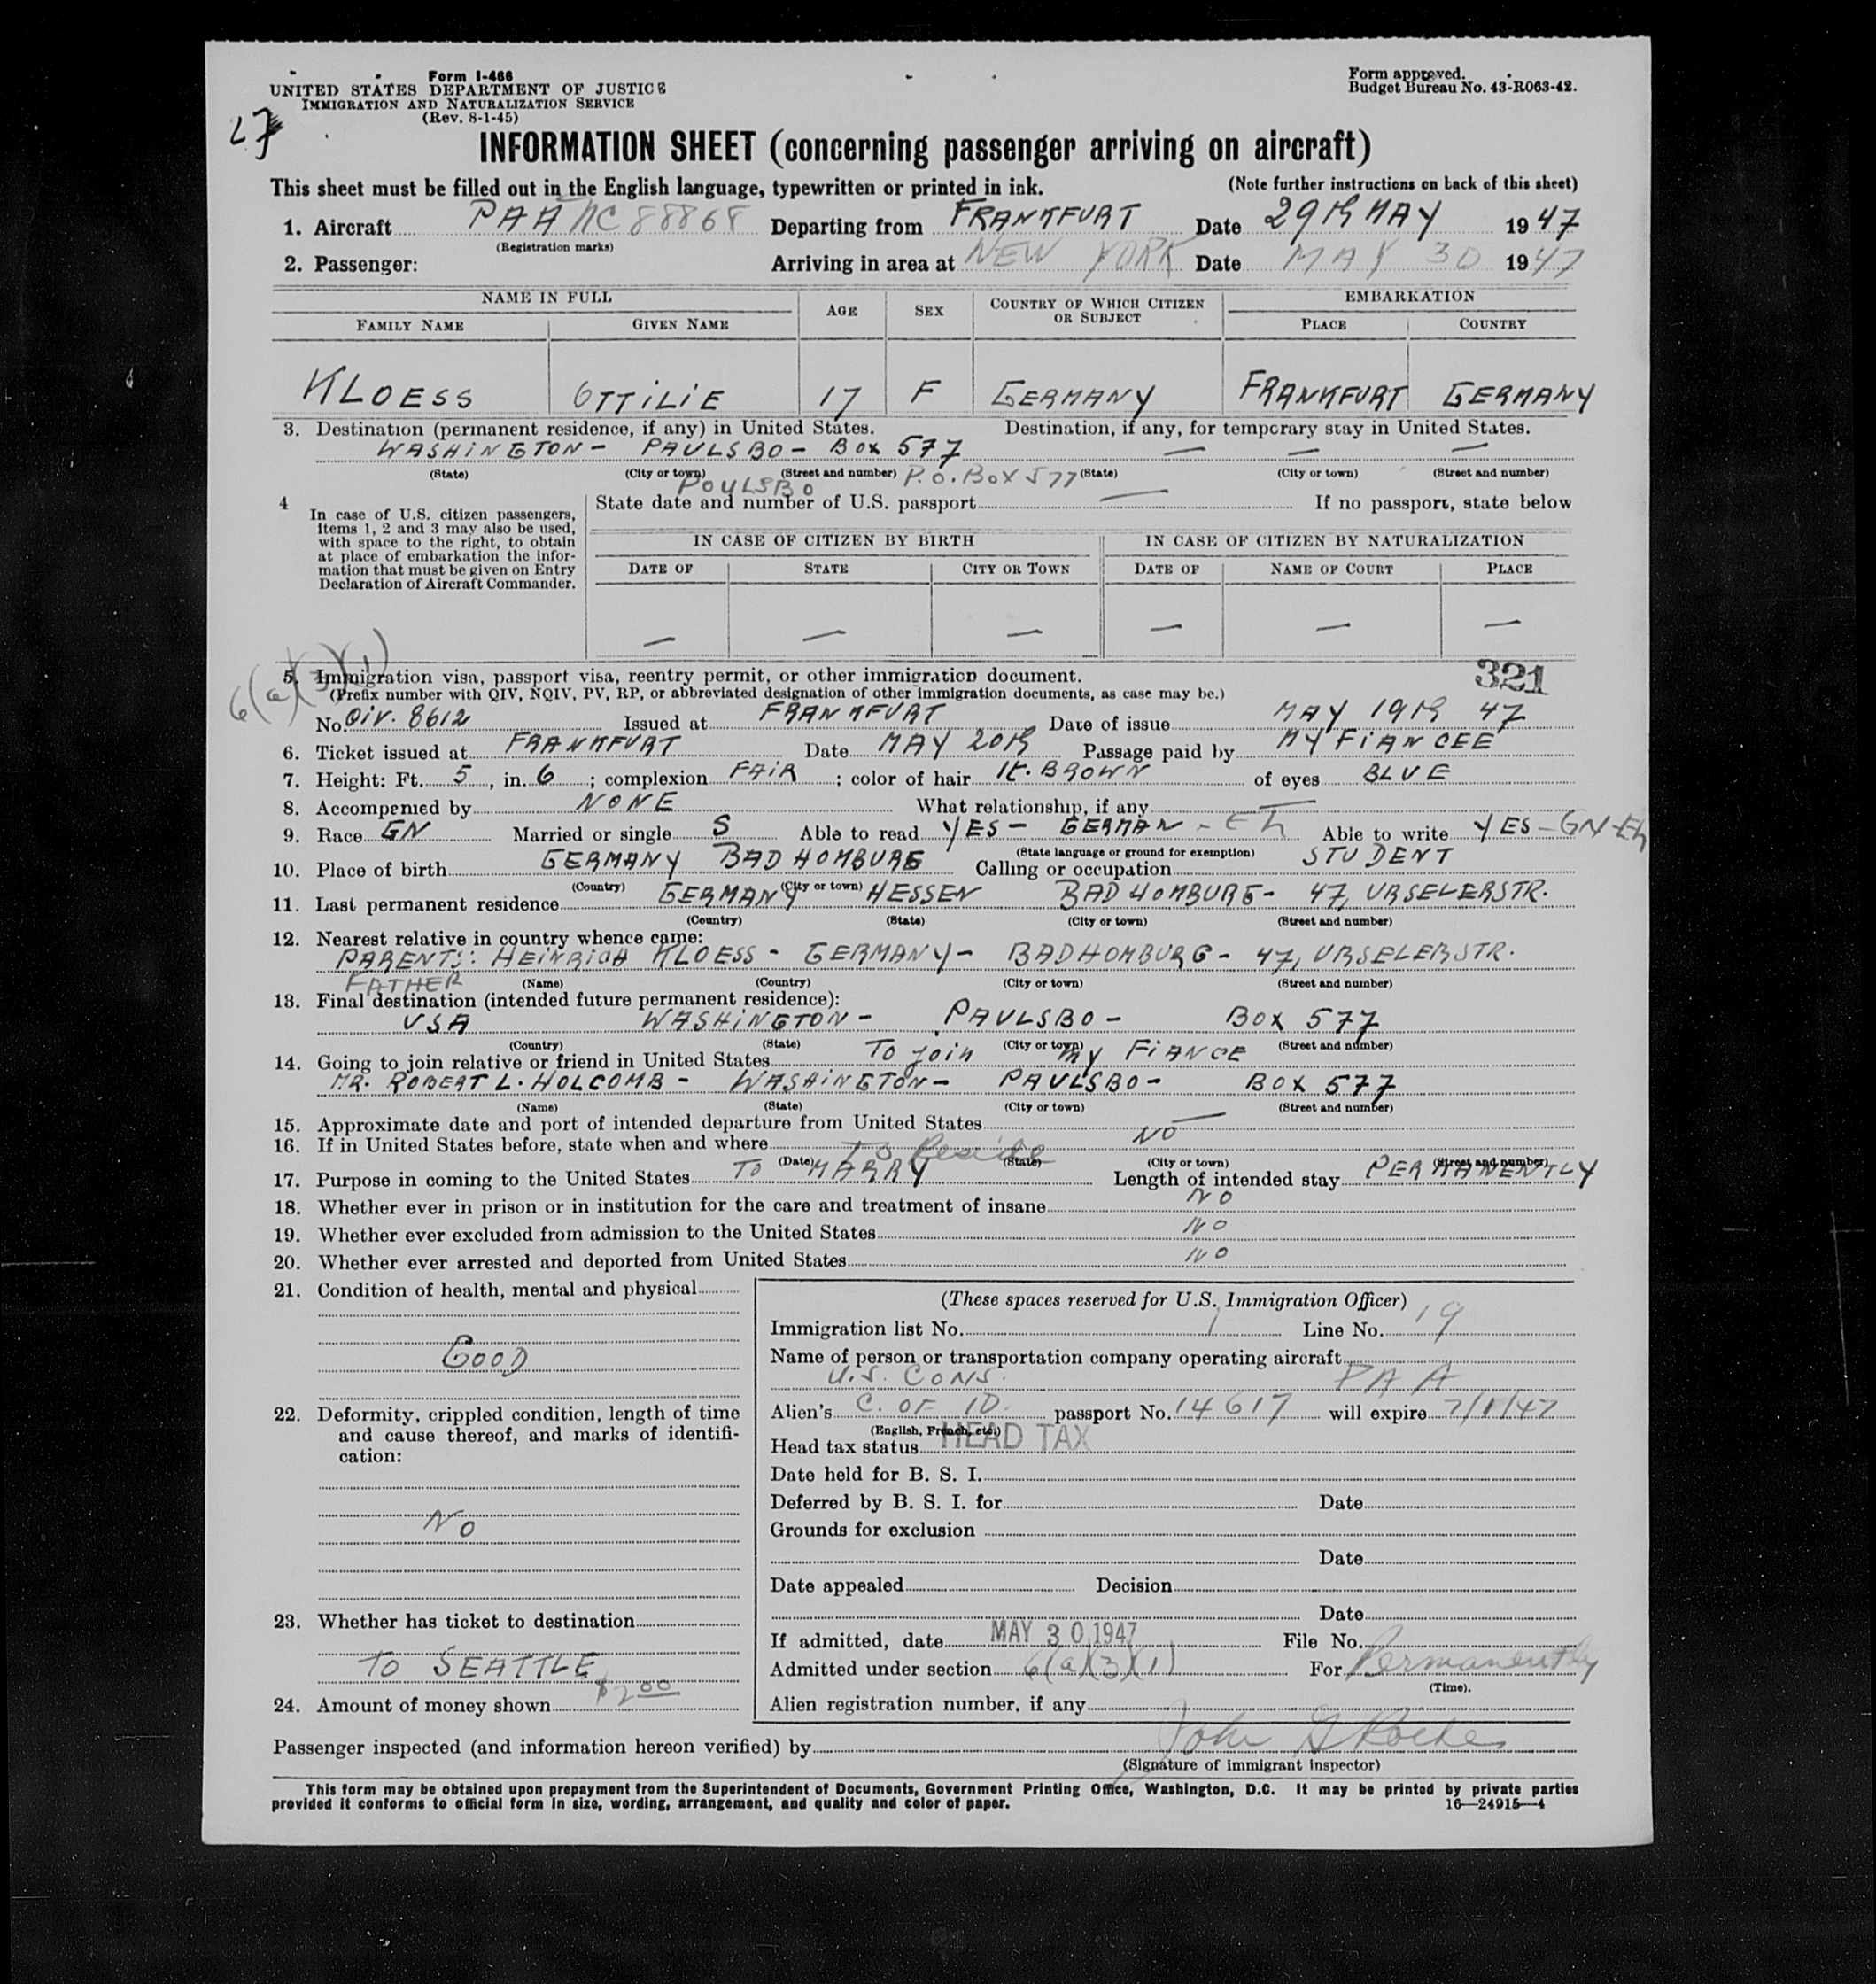 Form I-466
UNITED STATES DEPARTMENT OF JUSTICE
IMMIGRATION AND NATURALIZATION SERVICE
(Rev. 8-1-45)
Form approved.
Budget Bureau No. 43-R063-42.
INFORMATION SHEET (concerning passenger arriving on aircraft)
This sheet must be filled out in the English language, typewritten or printed in ink. (Note further instructions on back of this sheet)
1. Aircraft PAA NC 88868 Departing from FRANKFURT Date 29th MAY 1947
(Registration marks)
2. Passenger: Arriving in area at NEW YORK Date MAY 30 1947
NAME IN FULL AGE SEX COUNTRY OF WHICH CITIZEN OR SUBJECT EMBARKATION
FAMILY NAME GIVEN NAME PLACE COUNTRY
KLOESS OTTILIE 17 F GERMANY FRANKFURT GERMANY
3. Destination (permanent residence, if any) in United States. Destination, if any, for temporary stay in United States.
WASHINGTON - PAULSBO - BOX 577 — — —
(State) (City or town) (Street and number) P.O. BOX 577 (State) (City or town) (Street and number)
POULSBO
4 In case of U.S. citizen passengers, items 1, 2 and 3 may also be used, with space to the right, to obtain at place of embarkation the information that must be given on Entry Declaration of Aircraft Commander.
State date and number of U.S. passport — If no passport, state below
IN CASE OF CITIZEN BY BIRTH IN CASE OF CITIZEN BY NATURALIZATION
DATE OF STATE CITY OR TOWN DATE OF NAME OF COURT PLACE
— — — — — —
6(a)(3)(1)
321
5. Immigration visa, passport visa, reentry permit, or other immigration document.
(Prefix number with QIV, NQIV, PV, RP, or abbreviated designation of other immigration documents, as case may be.)
No. QIV. 8612 Issued at FRANKFURT Date of issue MAY 19th 47
6. Ticket issued at FRANKFURT Date MAY 20th Passage paid by MY FIANCEE
7. Height: Ft. 5, in. 6; complexion FAIR; color of hair lt. BROWN of eyes BLUE
8. Accompanied by NONE What relationship, if any —
9. Race GN Married or single S Able to read YES - GERMAN - Eh Able to write YES - GN-Eh
(State language or ground for exemption)
10. Place of birth GERMANY BAD HOMBURG Calling or occupation STUDENT
(Country) (City or town)
11. Last permanent residence GERMANY HESSEN BAD HOMBURG - 47, URSELERSTR.
(Country) (State) (City or town) (Street and number)
12. Nearest relative in country whence came:
PARENTS: HEINRICH KLOESS - GERMANY - BAD HOMBURG - 47, URSELERSTR.
FATHER (Name) (Country) (City or town) (Street and number)
13. Final destination (intended future permanent residence):
USA WASHINGTON - PAULSBO - BOX 577
(Country) (State) (City or town) (Street and number)
14. Going to join relative or friend in United States To join my FIANCE
MR. ROBERT L. HOLCOMB - WASHINGTON - PAULSBO - BOX 577
(Name) (State) (City or town) (Street and number)
15. Approximate date and port of intended departure from United States —
16. If in United States before, state when and where NO
To Reside
(Date) (State) (City or town) (Street and number)
17. Purpose in coming to the United States TO MARRY Length of intended stay PERMANENTLY
18. Whether ever in prison or in institution for the care and treatment of insane NO
19. Whether ever excluded from admission to the United States NO
20. Whether ever arrested and deported from United States NO
21. Condition of health, mental and physical
GOOD
22. Deformity, crippled condition, length of time and cause thereof, and marks of identification:
NO
23. Whether has ticket to destination
TO SEATTLE
24. Amount of money shown $2 00
(These spaces reserved for U.S. Immigration Officer)
Immigration list No. 1 Line No. 19
Name of person or transportation company operating aircraft
U.S. CONS. PAA
Alien's C. OF ID. passport No. 14617 will expire 7/1/47
(English, French, etc.)
Head tax status HEAD TAX
Date held for B. S. I.
Deferred by B. S. I. for Date
Grounds for exclusion
Date
Date appealed Decision
Date
If admitted, date MAY 30 1947 File No.
Admitted under section 6(a)(3)(1) For Permanently
(Time).
Alien registration number, if any
Passenger inspected (and information hereon verified) by John
(Signature of immigrant inspector)
This form may be obtained upon prepayment from the Superintendent of Documents, Government Printing Office, Washington, D.C. It may be printed by private parties
provided it conforms to official form in size, wording, arrangement, and quality and color of paper. 16—24915—4